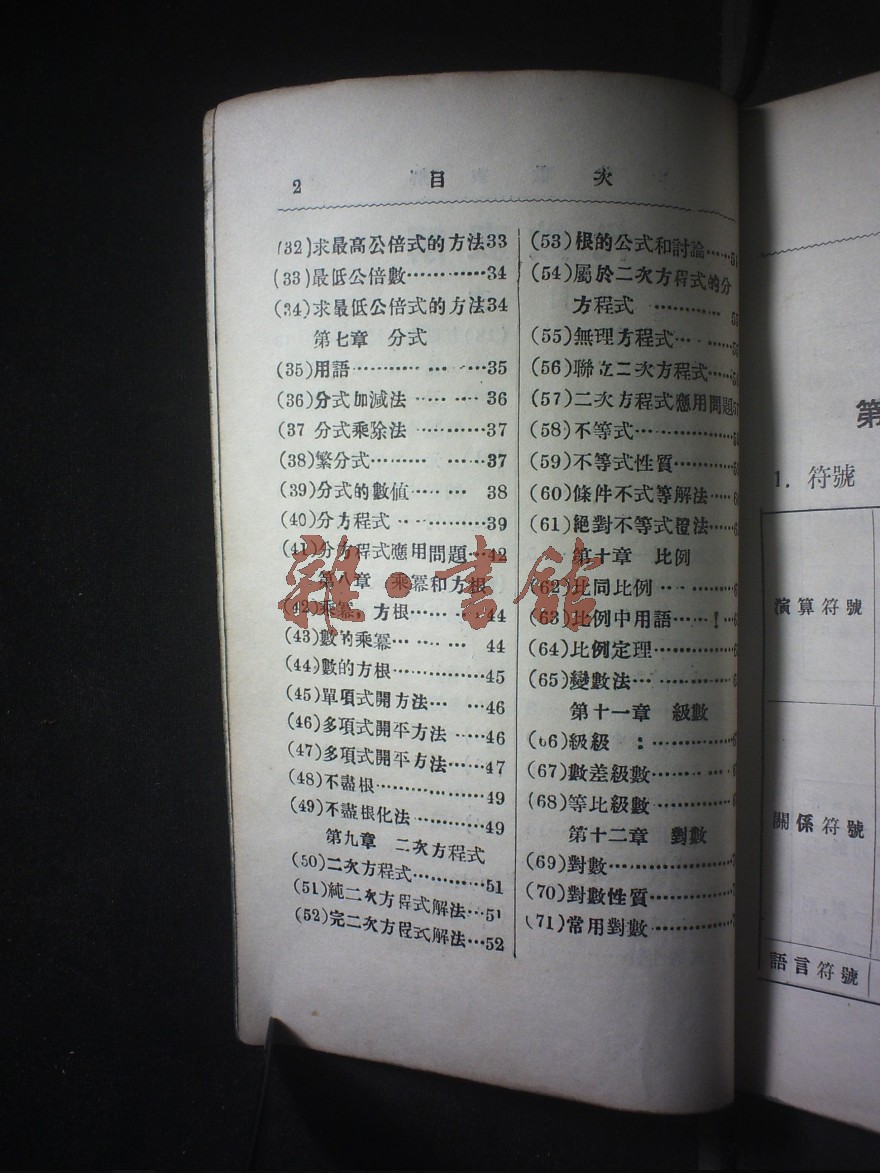 2 目 次
(32)求最高公倍式的方法33
(33)最低公倍數…………34
(34)求最低公倍式的方法34
第七章 分式
(35)用語…………………35
(36)分式加減法………… 36
(37 分式乘除法…………37
(38)繁分式………………37
(39)分式的數值……… 38
(40)分方程式……………39
(41)分方程式應用問題…42
第八章 乘冪和方根
(42)乘冪，方根…………44
(43)數的乘冪……… 44
(44)數的方根……………45
(45)單項式開方法… …46
(46)多項式開平方法……46
(47)多項式開平方法……47
(48)不盡根………………49
(49)不盡根化法…………49
第九章 二次方程式
(50)二次方程式…………51
(51)純二次方程式解法…51
(52)完二次方程式解法…52
(53)根的公式和討論……
(54)屬於二次方程式的分
方程式 …………
(55)無理方程式……
(56)聯立二次方程式……
(57)二次方程式應用問題
(58)不等式……………
(59)不等式性質………
(60)條件不式等解法……
(61)絕對不等式證法……
第十章 比例
(62)比同比例…………
(63)比例中用語……!…
(64)比例定理…………
(65)變數法……………
第十一章 級數
(66)級級 :…………
(67)數差級數…………
(68)等比級數…………
第十二章 對數
(69)對數………………
(70)對數性質…………
(71)常用對數…………
雜·書館
第
1. 符號
演算符號
關係符號
語言符號